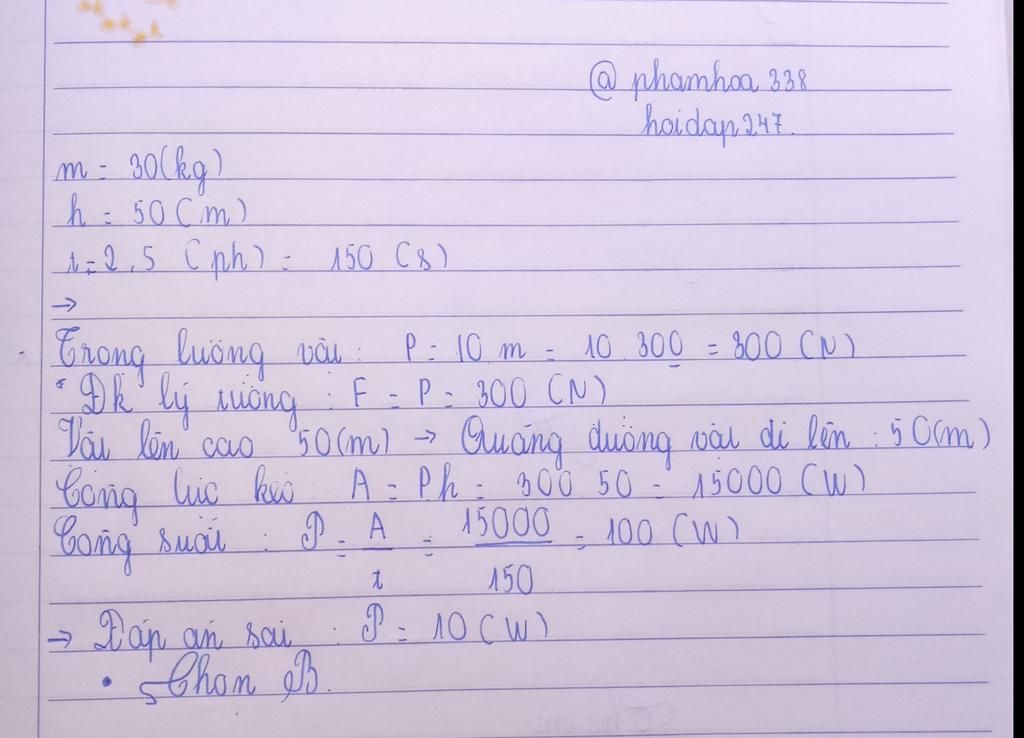 @ phamhoa 338
hoidap247.
m = 30(kg)
h = 50 (m)
t = 2,5 (ph) = 150 (s)
→
Trọng lượng vật : P = 10 m = 10.300 = 300 (N)
* Đk lý tưởng : F = P = 300 (N)
Vật lên cao 50(m) → Quãng đường vật đi lên : 50(m)
Công lực kéo A = Ph = 300.50 = 15000 (W)
Công suất : P = A/t = 15000/150 = 100 (W)
→ Đáp án sai : P = 10 (W)
• Chọn B.